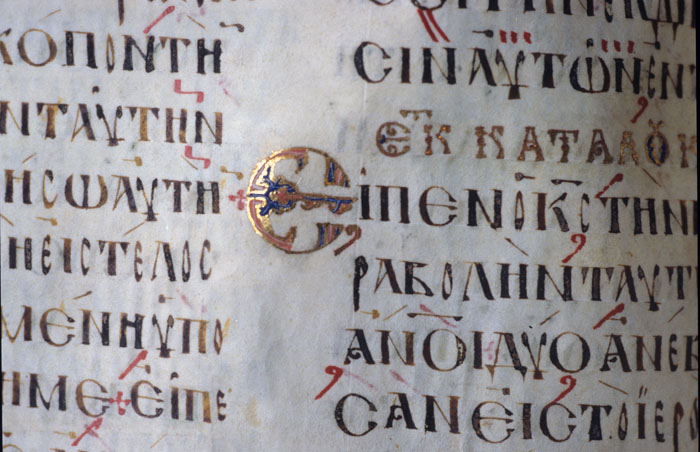 ΚΟΠΟΝΤΗ
ΝΤΑΥΤΗΝ
ΗϹΩΑΥΤΗ
ΗΕΙϹΤΕΛΟϹ
ΜΕΝΗΥΠΟ
ΗΜΕ+ΕΙΠΕ
ϹΙΝΑΥΤΩΝΕΝΤ
ΕΚ ΚΑΤΑ ΛΟΥΚ
ΕΙΠΕΝΟΚϹΤΗΝ
ΡΑΒΟΛΗΝΤΑΥΤ
ΑΝΟΙΔΥΟΑΝΕΒ
ϹΑΝΕΙϹΤΟΪΕΡΟ